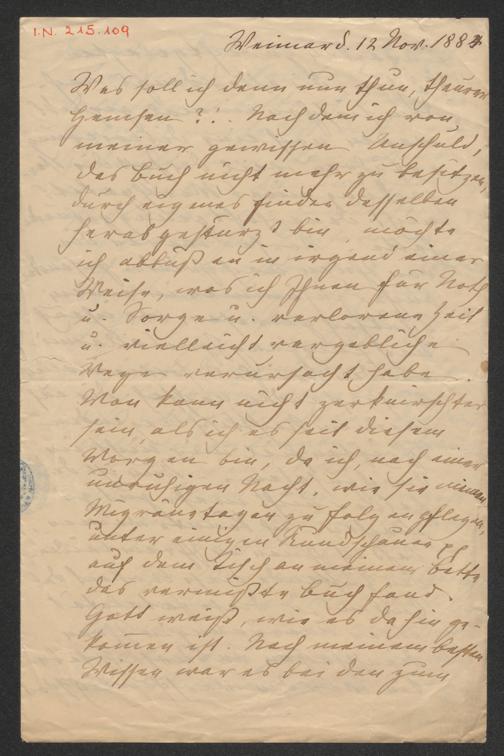 I.N. 215.109
Weimar d. 12 Nov. 188
Was soll ich denn nun thun, theurer
Hemsen?! Nachdem ich von
meiner gewissen Unschuld,
das Buch nicht mehr zu besitzen,
durch eigenes Finden desselben
herabgestürzt bin, möchte
ich abbüßen in irgend einer
Weise, was ich Ihnen für Noth
u. Sorge u. verlorene Zeit
u. vielleicht vergebliche
Wege verursacht habe.
Man kann nicht zerknirschter
sein, als ich es seit diesem
Morgen bin, da ich, nach einer
unruhigen Nacht, wie sie meinen
Migränetagen zu folgen pflegen,
unter einigen Rundschauen
auf dem Tisch an meinem Bette
das vermißte Buch fand.
Gott weiß, wie es dahin ge-
kommen ist. Nach meinem besten
Wissen war es bei den zum